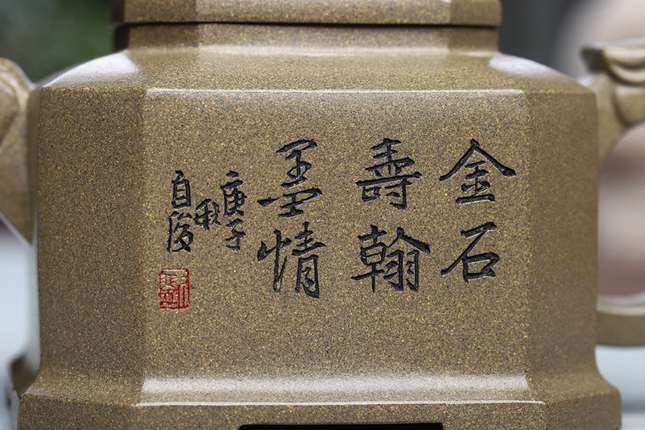 金石
壽翰
墨情
庚子秋
自俊